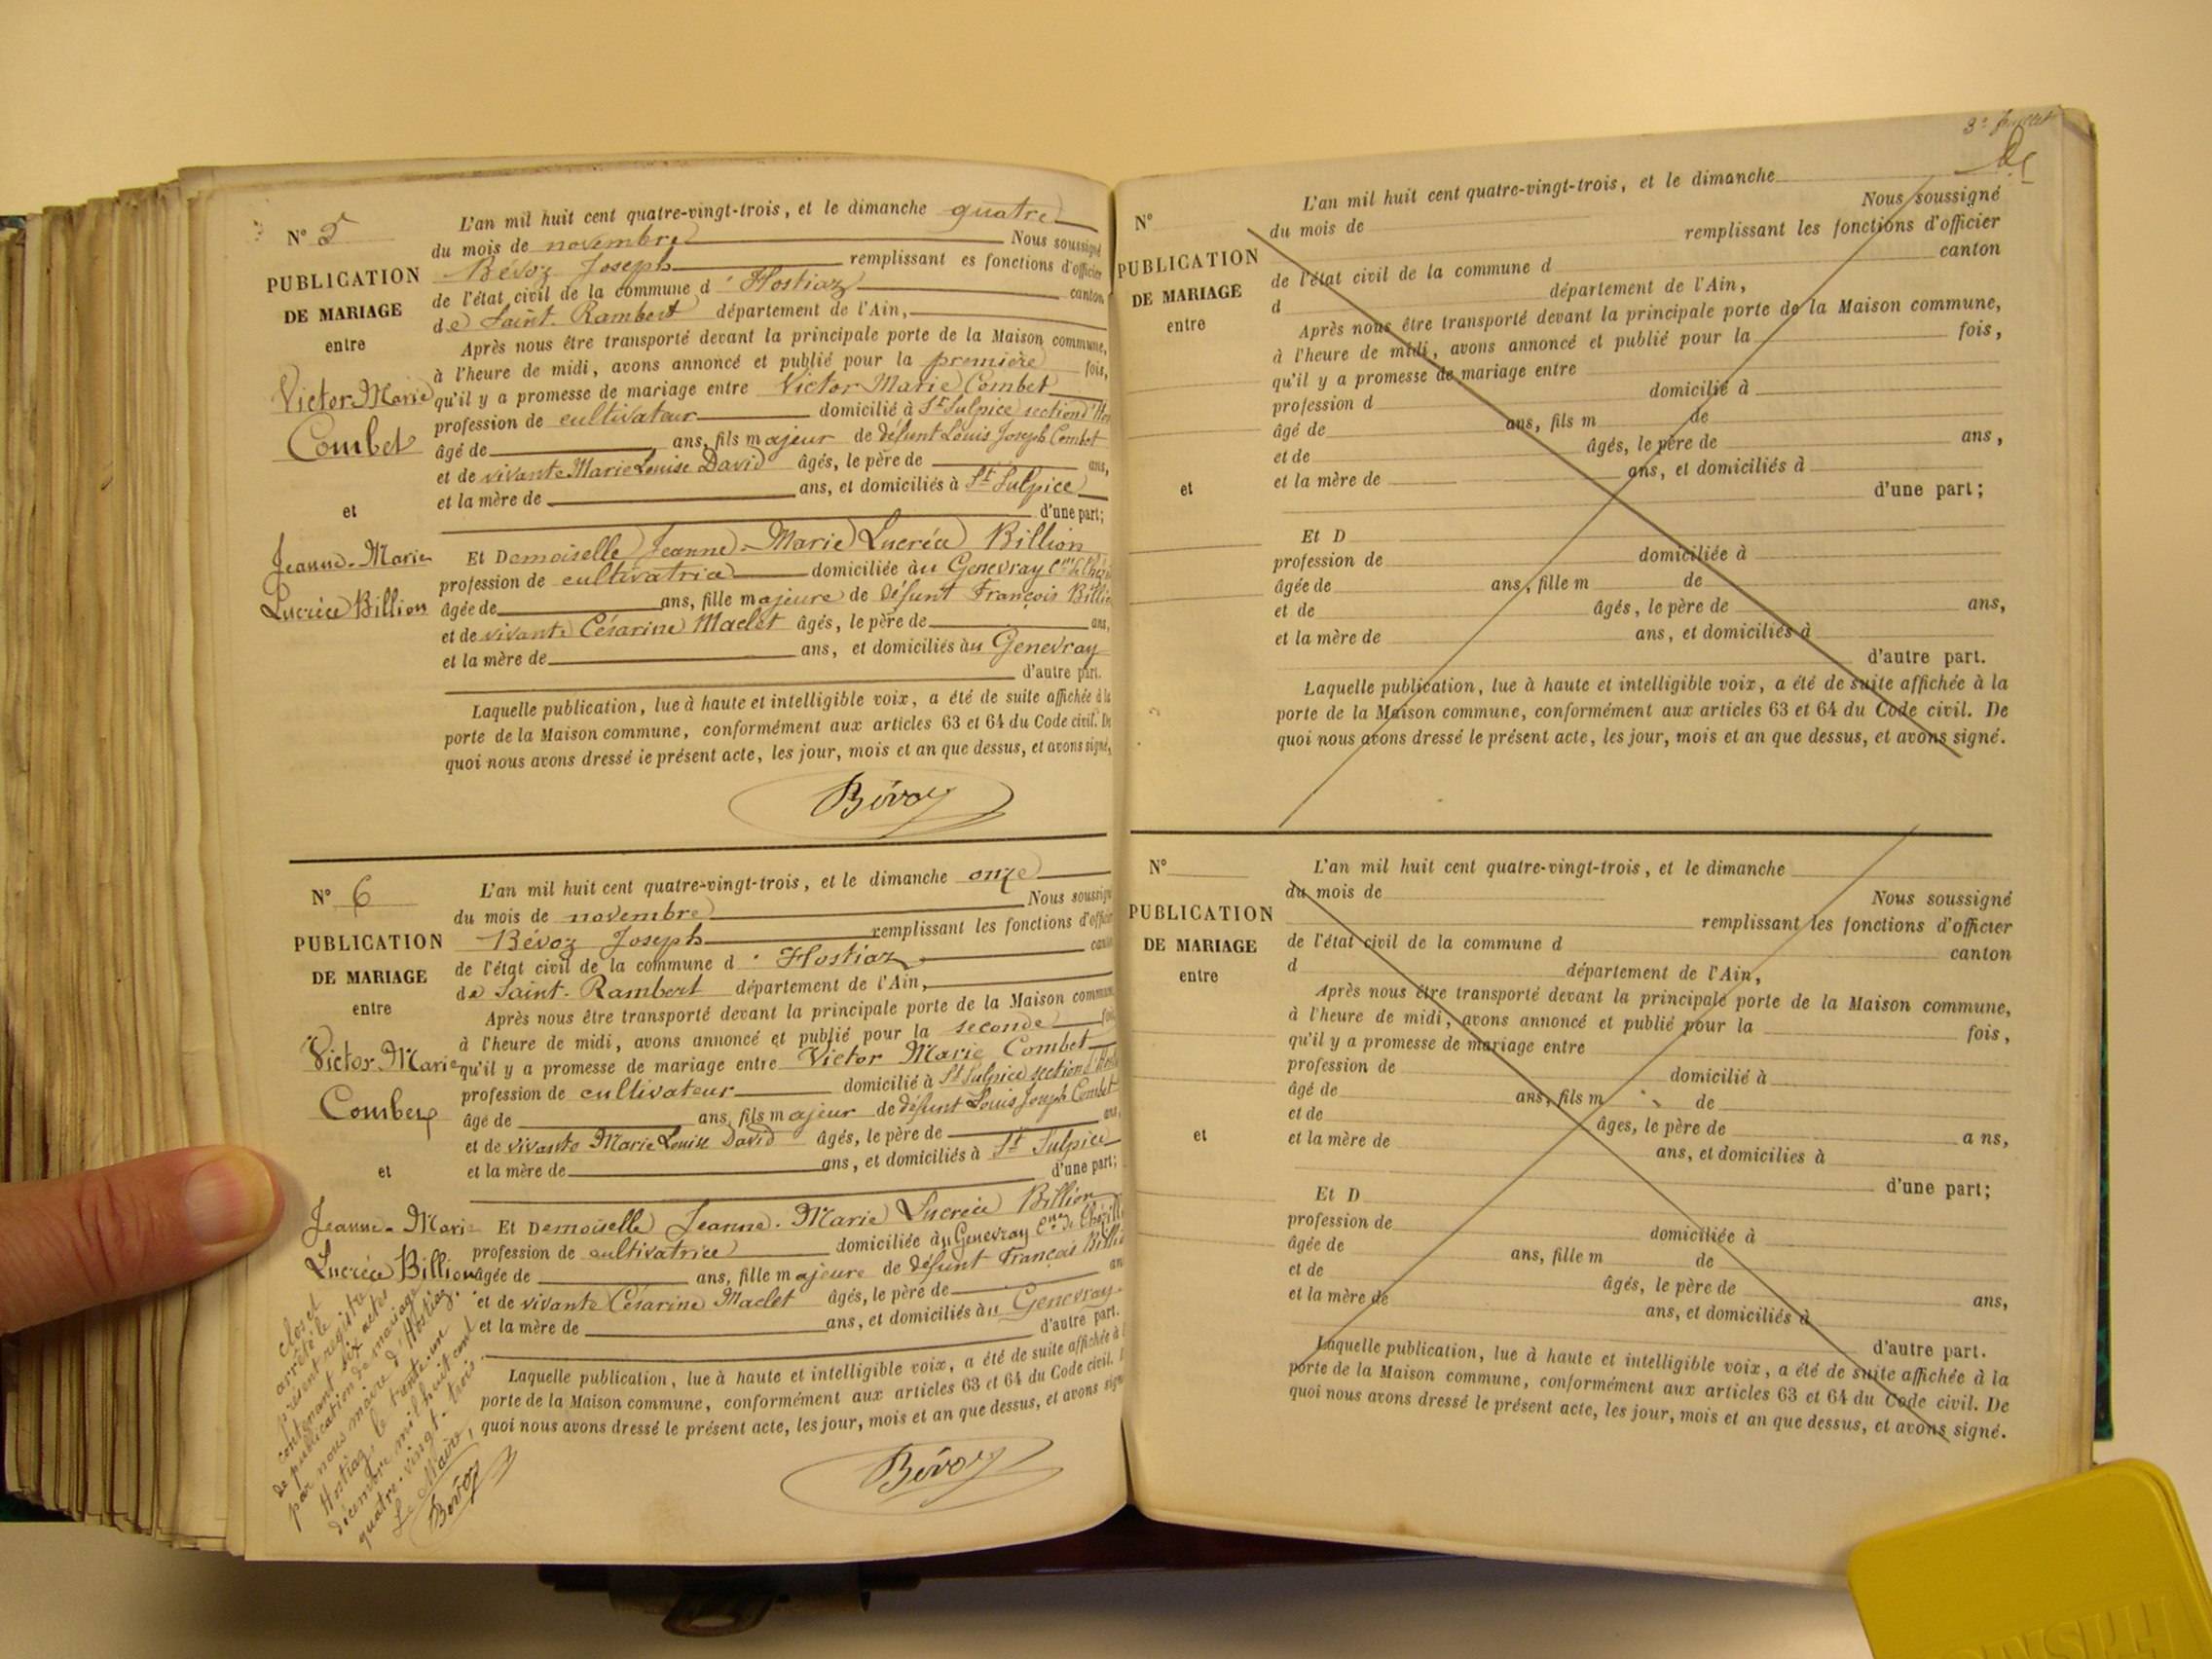 N° 5
PUBLICATION
DE MARIAGE
entre
Victor Marie
Combet
et
Jeanne-Marie
Lucréce Billion
L'an mil huit cent quatre-vingt-trois, et le dimanche quatre
du mois de novembre Nous soussigné
Bévoz Joseph remplissant es fonctions d'officier
de l'état civil de la commune d'Hostiaz canton
de Saint-Rambert département de l'Ain,
Après nous être transporté devant la principale porte de la Maison commune,
à l'heure de midi, avons annoncé et publié pour la première fois,
qu'il y a promesse de mariage entre Victor Marie Combet
profession de cultivateur domicilié à St Sulpice section d'Hos
âgé de ans, fils majeur de défunt Louis Joseph Combet
et de vivante Marie Louise David âgés, le père de ans,
et la mère de ans, et domiciliés à St Sulpice
d'une part;
Et Demoiselle Jeanne-Marie Lucréce Billion
profession de cultivatrice domiciliée au Genevray Cne de
âgée de ans, fille majeure de défunt François Billion
et de vivante Césarine Maclet âgés, le père de ans,
et la mère de ans, et domiciliés au Genevray
d'autre part.
Laquelle publication, lue à haute et intelligible voix, a été de suite affichée à la
porte de la Maison commune, conformément aux articles 63 et 64 du Code civil. De
quoi nous avons dressé le présent acte, les jour, mois et an que dessus, et avons signé,
Bévoz
N° 6
PUBLICATION
DE MARIAGE
entre
Victor Marie
Combet
et
Jeanne-Marie
Lucréce Billion
L'an mil huit cent quatre-vingt-trois, et le dimanche onze
du mois de novembre Nous soussigné
Bévoz Joseph remplissant les fonctions d'officier
de l'état civil de la commune d'Hostiaz canton
de Saint-Rambert département de l'Ain,
Après nous être transporté devant la principale porte de la Maison commune
à l'heure de midi, avons annoncé et publié pour la seconde fois
qu'il y a promesse de mariage entre Victor Marie Combet
profession de cultivateur domicilié à St Sulpice section d'Hostiaz
âgé de ans, fils majeur de défunt Louis Joseph Combet
et de vivante Marie Louise David âgés, le père de ans,
et la mère de ans, et domiciliés à St Sulpice
d'une part;
Et Demoiselle Jeanne-Marie Lucréce Billion
profession de cultivatrice domiciliée au Genevray Cne de
âgée de ans, fille majeure de défunt François Billion
et de vivante Césarine Maclet âgés, le père de an
et la mère de ans, et domiciliés au Genevray
d'autre part.
Laquelle publication, lue à haute et intelligible voix, a été de suite affichée à l
porte de la Maison commune, conformément aux articles 63 et 64 du Code civil.
quoi nous avons dressé le présent acte, les jour, mois et an que dessus, et avons signé
Bévoz
Clos et
arrêté le
présent registre
contenant six actes
de publication de mariage
par nous maire d'Hostiaz.
Hostiaz, le trente-un
décembre mil huit cent
quatre-vingt-trois.
Le Maire,
Bévoz
3e
N°
PUBLICATION
DE MARIAGE
entre
et
L'an mil huit cent quatre-vingt-trois, et le dimanche
du mois de Nous soussigné
remplissant les fonctions d'officier
de l'état civil de la commune d canton
d département de l'Ain,
Après nous être transporté devant la principale porte de la Maison commune,
à l'heure de midi, avons annoncé et publié pour la fois,
qu'il y a promesse de mariage entre
profession d domicilié à
âgé de ans, fils m de
et de âgés, le père de ans,
et la mère de ans, et domiciliés à
d'une part;
Et D
profession de domiciliée à
âgée de ans, fille m de
et de âgés, le père de ans,
et la mère de ans, et domiciliés à
d'autre part.
Laquelle publication, lue à haute et intelligible voix, a été de suite affichée à la
porte de la Maison commune, conformément aux articles 63 et 64 du Code civil. De
quoi nous avons dressé le présent acte, les jour, mois et an que dessus, et avons signé.
N°
PUBLICATION
DE MARIAGE
entre
et
L'an mil huit cent quatre-vingt-trois, et le dimanche
du mois de Nous soussigné
remplissant les fonctions d'officier
de l'état civil de la commune d canton
d département de l'Ain,
Après nous être transporté devant la principale porte de la Maison commune,
à l'heure de midi, avons annoncé et publié pour la fois,
qu'il y a promesse de mariage entre
profession de domicilié à
âgé de ans, fils m de
et de âges, le père de a ns,
et la mère de ans, et domicilies à
d'une part;
Et D
profession de domiciliée à
âgée de ans, fille m de
et de âgés, le père de ans,
et la mère de ans, et domiciliés à
d'autre part.
Laquelle publication, lue à haute et intelligible voix, a été de suite affichée à la
porte de la Maison commune, conformément aux articles 63 et 64 du Code civil. De
quoi nous avons dressé le présent acte, les jour, mois et an que dessus, et avons signé.